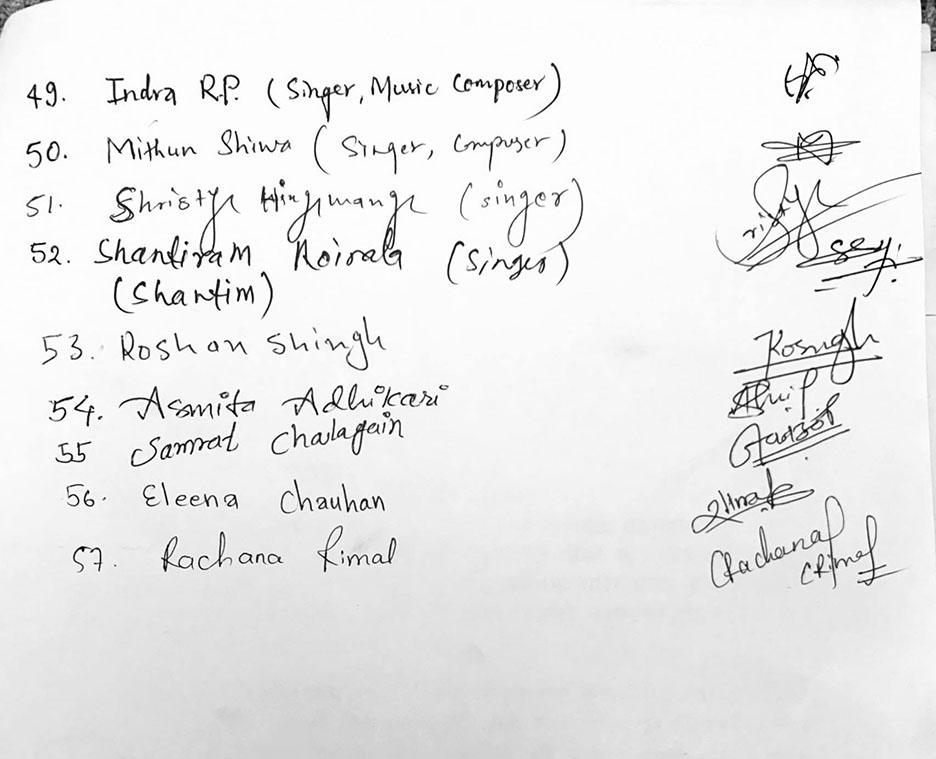 49. Indra R.P. (Singer, Music Composer)
50. Mithun Shiwa (Singer, Composer)
51. Shristy (singer)
52. Shantiram Koirala (Singer)
(Shantim)
53. Roshan Shingh
54. Asmita Adhikari
55 Samrat Chalagain
56. Eleena Chauhan
57. Rachana Rimal Rachana
Rimal